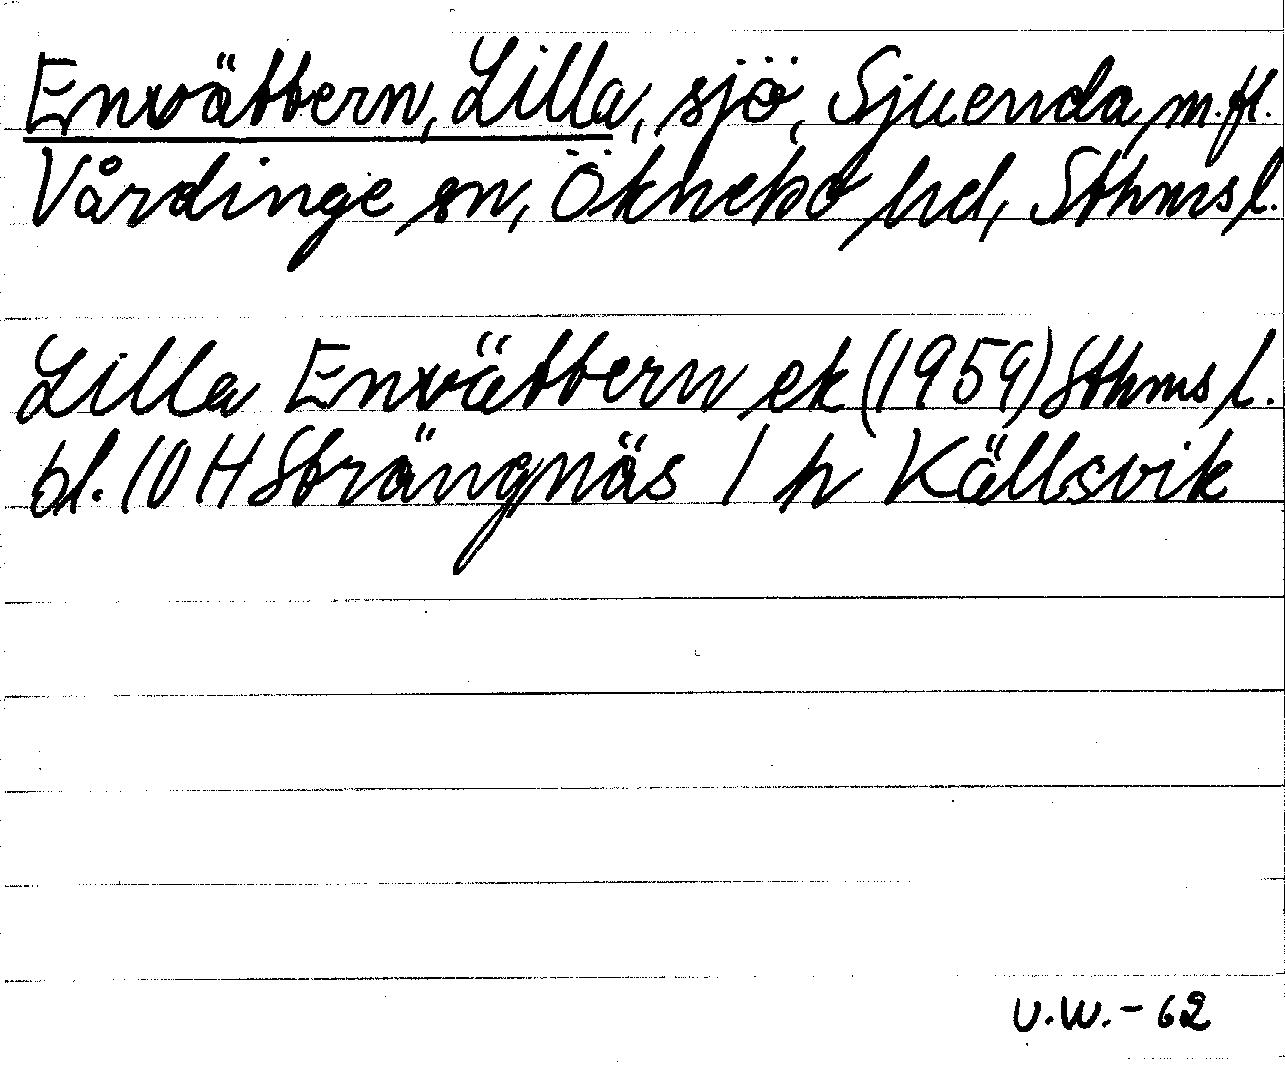 Envättern, Lilla, sjö, Sjuenda m.fl.
Vårdinge sn, Öknebo hd, Sthms l.
Lilla Envättern ek (1959) Sthms l.
bl. 10 H Strängnäs / h Källsvik
U.W. - 62